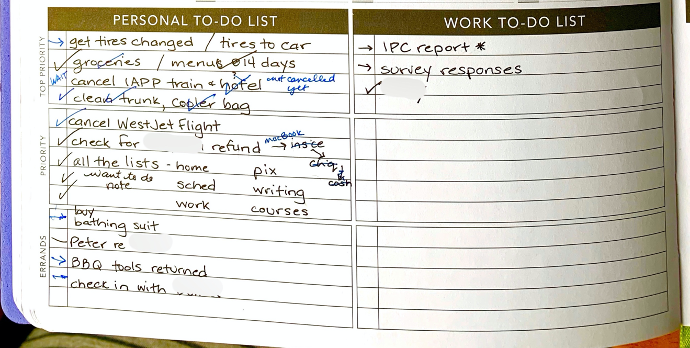 PERSONAL TO-DO LIST
WORK TO-DO LIST
TOP PRIORITY
→ get tires changed / tires to car
✓ groceries / menus 14 days
wait cancel IAPP train + hotel not cancelled yet
✓ clean trunk, cooler bag
→ IPC report *
→ survey responses
✓
PRIORITY
✓ cancel WestJet flight
✓ check for refund → MacBook
✓ all the lists - home pix
✓ want to do note sched writing cash
✓ work courses
ERRANDS
→ buy bathing suit
Peter re
→ BBQ tools returned
check in with